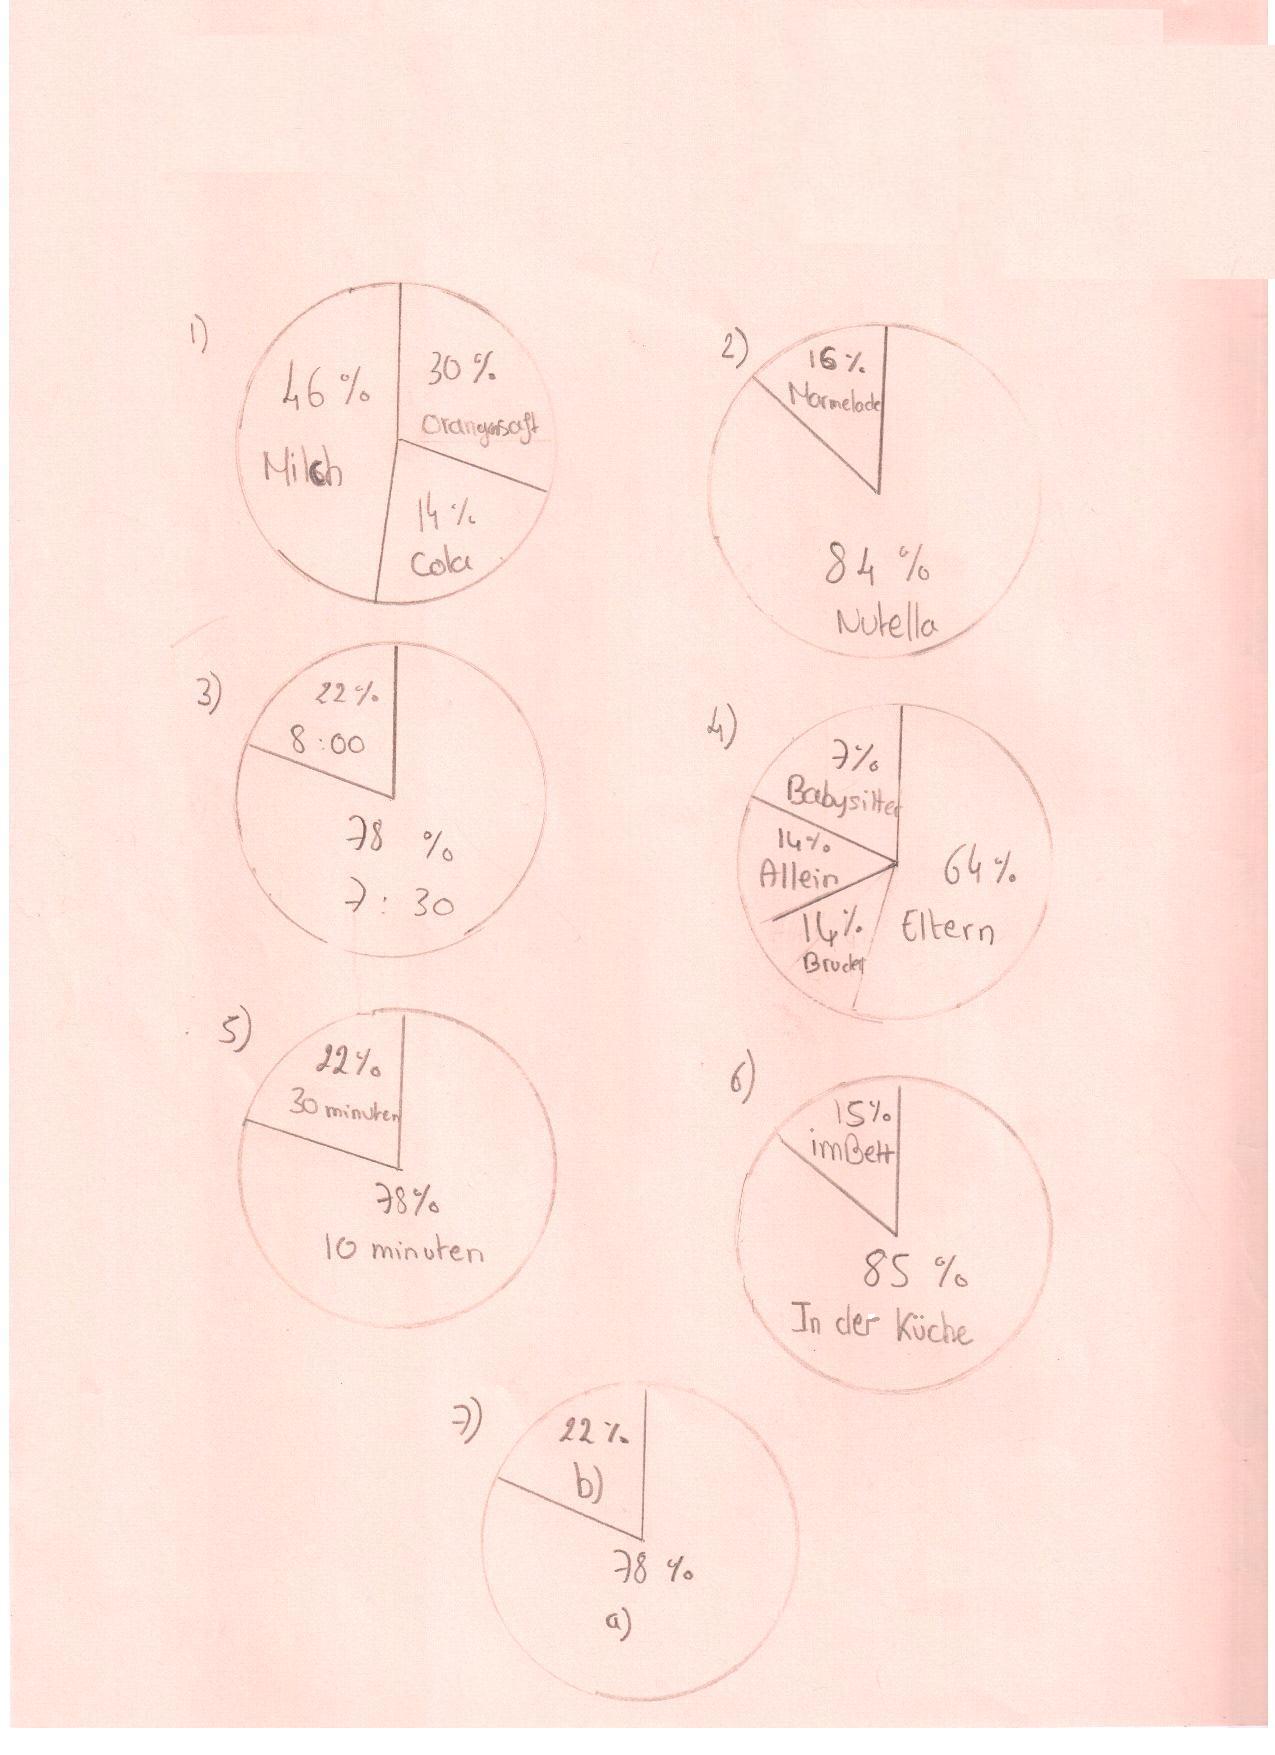 1)
46 %
Milch
30 %
Orangensaft
14 %
Cola
2)
16 %
Marmelade
84 %
Nutella
3)
22 %
8:00
78 %
7:30
4)
7%
Babysitter
14%
Allein
14%
Bruder
64%
Eltern
5)
22%
30 minuten
78%
10 minuten
6)
15%
im Bett
85 %
In der Küche
7)
22 %
b)
78 %
a)